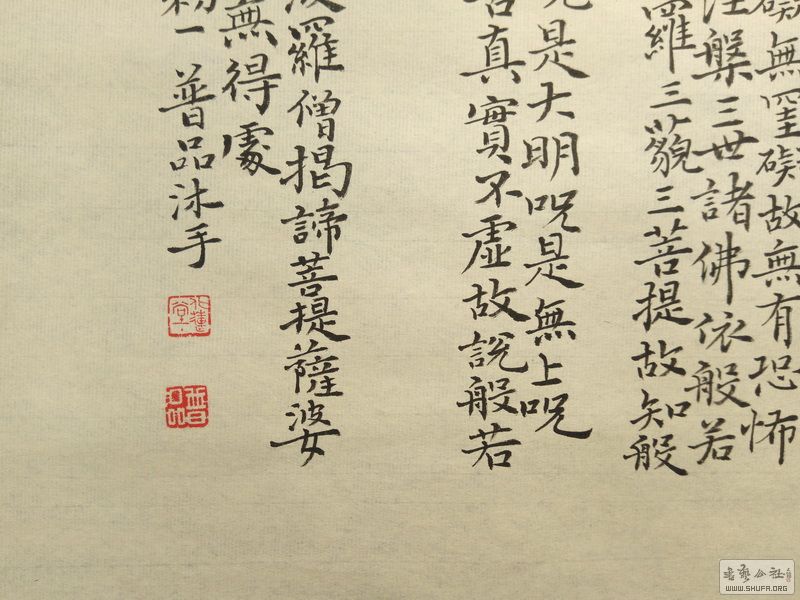 礙無罣礙故無有恐怖
涅槃三世諸佛依般若
羅三藐三菩提故知般
是大明咒是無上咒
真實不虛故說般若
羅僧揭諦菩提薩婆
無得處
初一普品沐手
普品
WWW.SHUFA.ORG